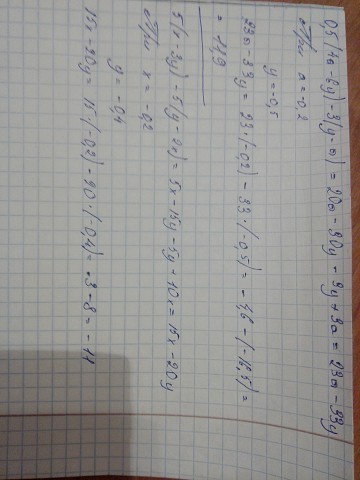 0,5(4a-6y)-3(y-a)=20a-30y-3y+3a=23a-33y
При a=-0,2
y=-0,5
23a-33y=23·(-0,2)-33·(-0,5)=-4,6-(-16,5)=
=11,9
5(x-3y)-5(y-2x)=5x-15y-5y+10x=15x-20y
При x=-0,2
y=-0,4
15x-20y=15·(-0,2)-20·(-0,4)=-3-8=-11